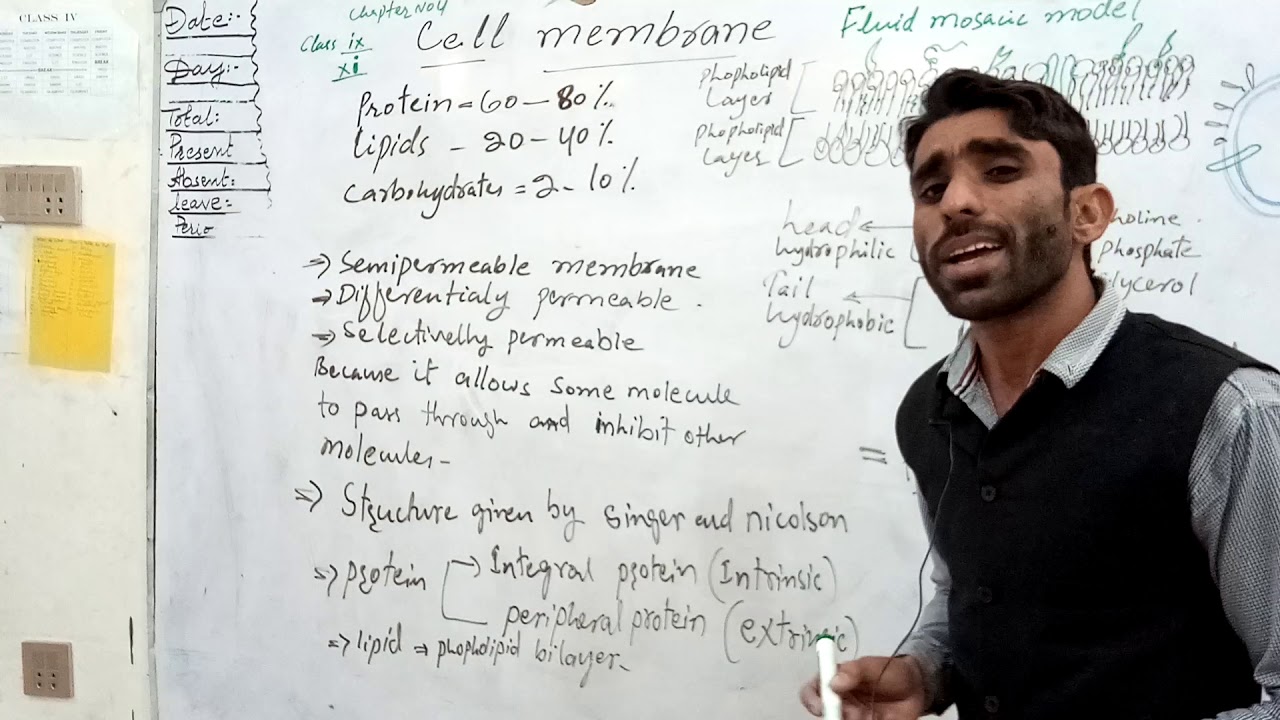 CLASS IV
Date:-
Day:-
Total:
Present
Absent:
leave:
Perio
Chapter No4
Class ix
xi
Cell membrane
Protein = 60 - 80%
lipids - 20 - 40%
carbohydrates = 2 - 10%
=> Semipermeable membrane
=> Differentialy permeable.
=> Selectivelly permeable
Because it allows some molecule
to pass through and inhibit other
molecules-
=> Structure given by Singer and nicolson
=> protein → Integral protein (Intrinsic)
peripheral protein (extrinsic)
=> lipid => phopholipid bilayer-
Fluid mosacic model
phopholipid
Layer
phopholipid
Layer
head
hydrophilic
Tail
hydrophobic
holine
phosphate
lycerol
=